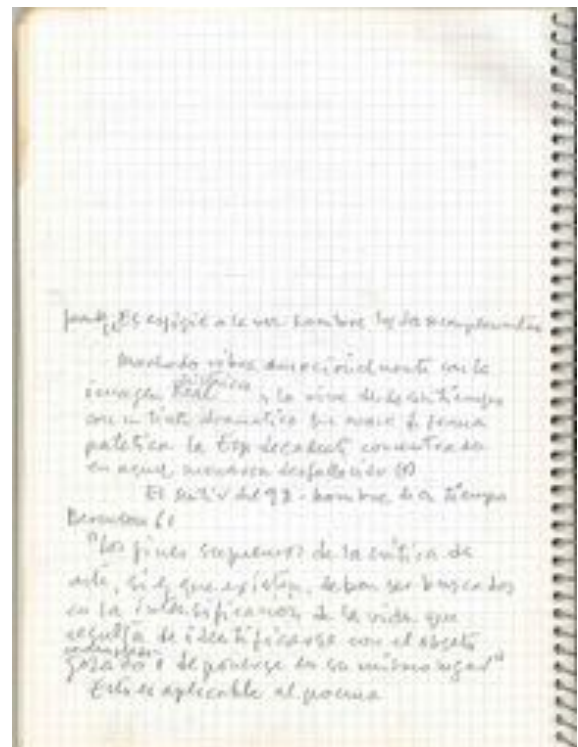 Es efigie a la vez hombre los dos
Machado vibra emocionalmente con la
imagen Real histórica, la vive desde su tiempo
con un tinte dramático que
patética la Esp decadente concentrada
en aquel monarca desfallecido (1)
El del 98 - hombre de su tiempo
Berenson 61
"Los fines supremos de la crítica de
arte, si es que existen, deben ser buscados
en la intensificación de la vida que
resulta de identificarse con el objeto
gozado o de ponerse en su mismo lugar"
Esto es aplicable al poema